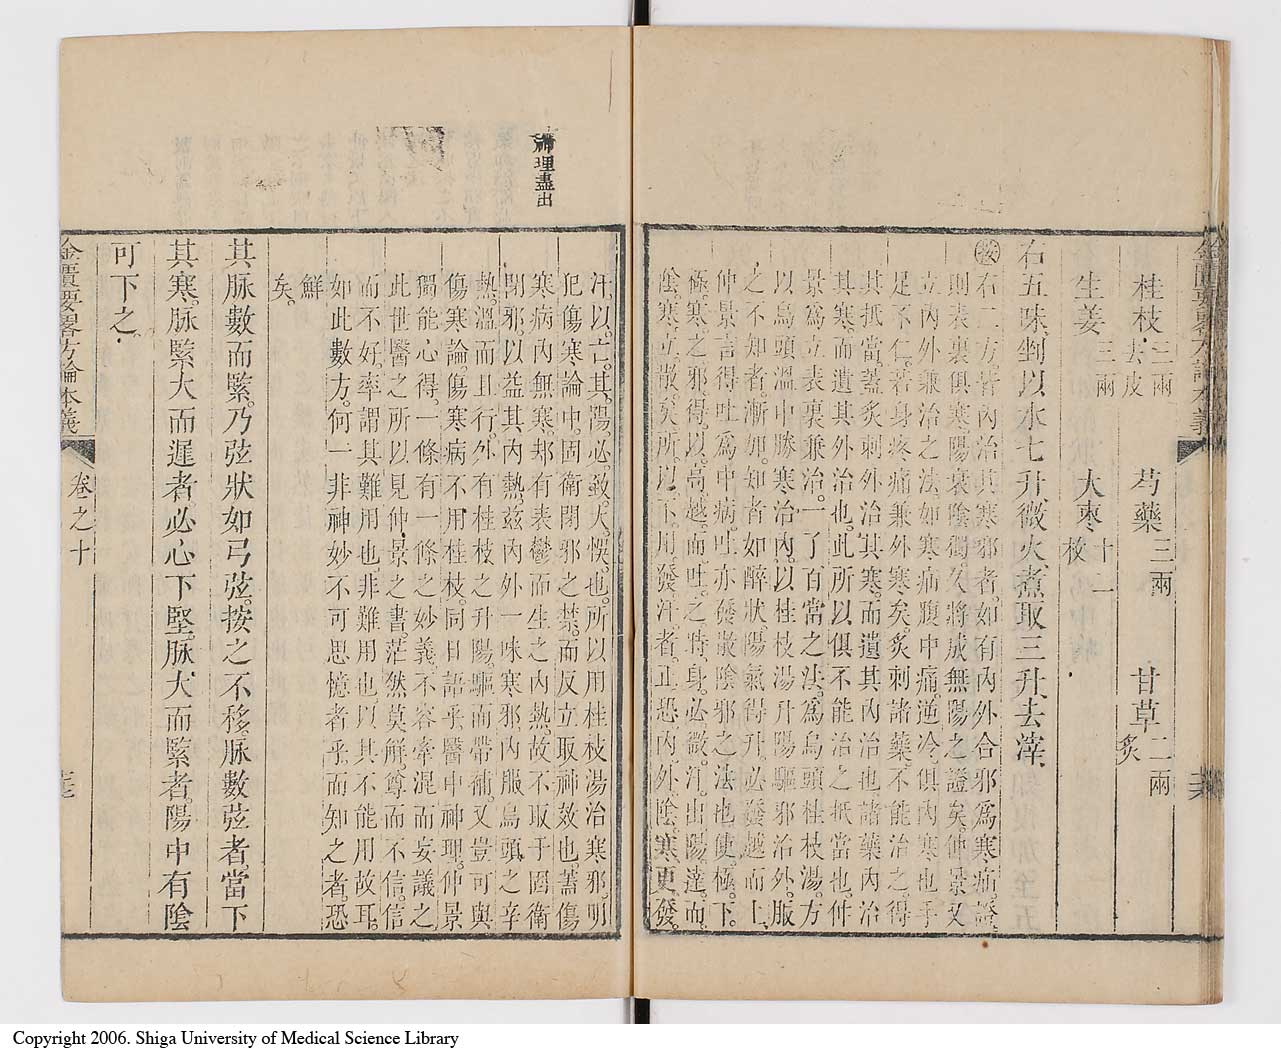 桂枝三兩去皮 芍藥三兩 甘草二兩炙
生姜三兩 大棗十一枚
右五味剉以水七升微火煮取三升去滓
按右二方。皆內治其寒邪者。如有內外合邪爲寒疝證。
則表裏俱寒。陽衰陰獨久。將成無陽之證矣。仲景又
立內外兼治之法。如寒疝腹中痛逆冷。俱內寒也。手
足不仁。若身疼痛。兼外寒矣。灸刺諸藥。不能治之。得
其抵當。蓋灸刺外治其寒。而遺其內治也。諸藥內治
其寒。而遺其外治也。此所以俱不能治之抵當也。仲
景爲立表裏兼治。一了百當之法。爲烏頭桂枝湯。方
以烏頭溫中勝寒治內。以桂枝湯升陽驅邪治外。服
之不知者。漸加。知者如醉狀。陽氣得升。必發越而上。
仲景言得吐爲中病。吐亦發散陰邪之法也。使極。下。
極。寒之邪。得以高越。而吐之時。身必微汗出。陽達。而
陰寒立散矣。所以不用發汗者。正恐內外陰寒。更發。
汗。以亡其陽。必致大悞也。所以用桂枝湯治寒邪。明
犯傷寒論中。固衛閉邪之禁。而反立取神效也。蓋傷
寒病內無寒邪。有表鬱而生之內熱。故不取于固衛
閉邪。以益其內熱。茲內外一味寒邪。內服烏頭之辛
熱。溫而且行。外有桂枝之升陽。驅而帶補。又豈可與
傷寒論。傷寒病不用桂枝。同日語乎。醫中神理。仲景
獨能心得。一條有一條之妙義。不容牽混而妄議之
此世醫之所以見仲景之書。茫然莫解。尊而不信。信
而不好。率謂其難用也。非難用也。以其不能用故耳。
如此數方。何一非神妙不可思憶者乎。而知之者。恐
鮮
矣。
其脉數而緊。乃弦狀如弓弦。按之不移。脉數弦者。當下
其寒。脉緊大而遲者。必心下堅。脉大而緊者。陽中有陰
可下之。
理盡出
金匱要畧方論本義
卷之十
Copyright 2006. Shiga University of Medical Science Library